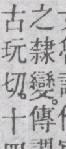 之隸變。傳
古玩切。十